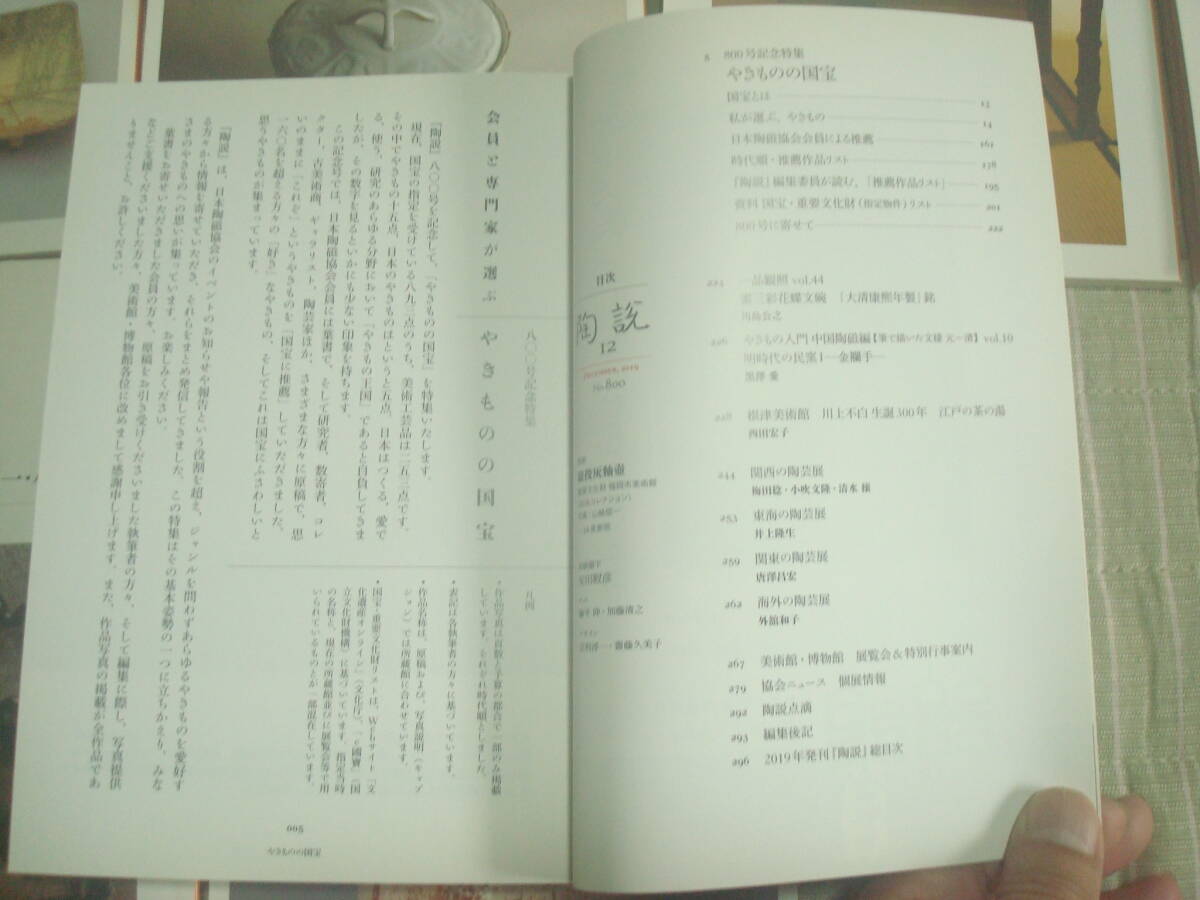 5 800号記念特集
やきものの国宝
国宝とは 13
私が選ぶ、やきもの 14
日本陶磁協会会員による推薦 162
時代順・推薦作品リスト 178
『陶説』編集委員が読む、「推薦作品リスト」 195
資料 国宝・重要文化財(指定物件)リスト 201
800号に寄せて 222
目次
陶説
12
december, 2019
No.800
224 一品観照 vol.44
素三彩花蝶文碗 「大清康熙年製」銘
川島公之
226 やきもの入門 中国陶磁編【筆で描いた文様 元〜清】vol.10
明時代の民窯Ⅰ―金襴手―
黒澤 愛
228 根津美術館 川上不白 生誕300年 江戸の茶の湯
西田宏子
244 関西の陶芸展
梅田稔・小吹文隆・清水 穣
253 東海の陶芸展
井上隆生
259 関東の陶芸展
唐澤昌宏
262 海外の陶芸展
外舘和子
267 美術館・博物館 展覧会&特別行事案内
279 協会ニュース 個展情報
292 陶説点滴
293 編集後記
296 2019年発刊『陶説』総目次
猿投灰釉壺
重要文化財 福岡市美術館
・加藤清之
・齋藤久美子
八〇〇号記念特集
会員と専門家が選ぶ やきものの国宝
『陶説』八〇〇号を記念して、「やきものの国宝」を特集いたします。
現在、国宝の指定を受けている八九三点のうち、美術工芸品は二五三点です。
その中でやきもの十五点、日本のやきものはというと五点。日本はつくる、愛で
る、使う、研究のあらゆる分野において「やきもの王国」であると自負してきま
したが、その数字を見るといかにも少ない印象を持ちます。
この記念号では、日本陶磁協会会員には葉書で、そして研究者、数寄者、コレ
クター、古美術商、ギャラリスト、陶芸家ほか、さまざまな方々に原稿で、思
いのままに「これぞ」というやきものを「国宝に推薦」していただきました。
一六〇名を超える方々の「好き」なやきもの、そしてこれは国宝にふさわしいと
思うやきものが集まっています。
『陶説』は、日本陶磁協会のイベントのお知らせや報告という役割を超え、ジャンルを問わずあらゆるやきものを愛好す
る方々から情報を寄せていただき、それらをまとめ発信してきました。この特集はその基本姿勢の一つに立ちかえり、みな
さまのやきものへの思いが集っています。お楽しみください。
葉書をお寄せいただきました会員の方々、原稿をお引き受けくださいました執筆者の方々、そして編集に際し、写真提供
などご支援くださいました方々、美術館・博物館各位に改めまして感謝申し上げます。また、作品写真の掲載が全作品であ
りませんこと、お許しください。
凡例
・作品写真は頁数と予算の都合で一部のみ掲載
しています。それぞれ時代順としました。
・表記は各執筆者の方々に基づいています。
・作品名称は、原稿および、写真説明(キャプ
ション)では所蔵館に合わせています。
・国宝・重要文化財リストは、Webサイト「文
化遺産オンライン」(文化庁)、「e國寶」(国
立文化財機構)に基づいています。指定当時
の名称と、現在の所蔵館並びに展覧会等で用
いられているものとが一部混在しています。
005
やきものの国宝